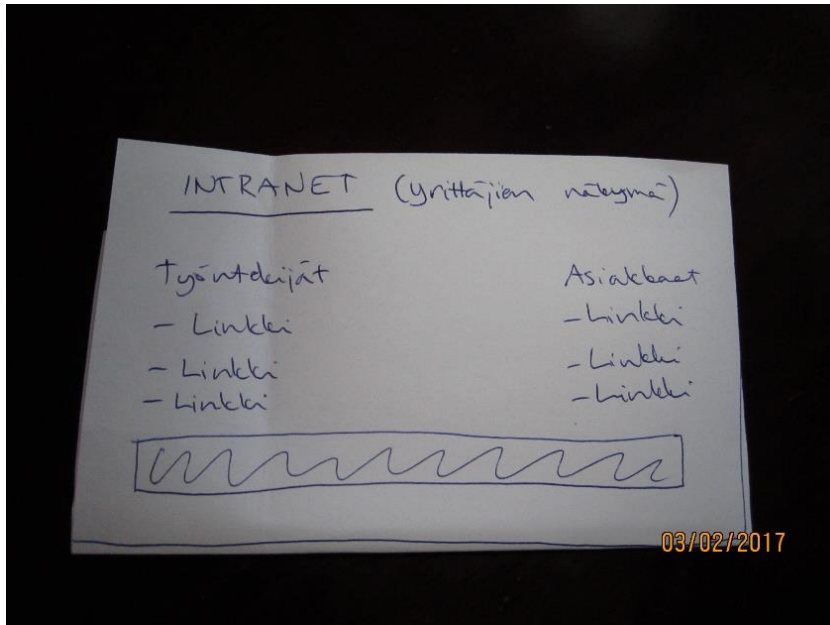 INTRANET (yrittäjien näkymä)
Työntekijät
- Linkki
- Linkki
- Linkki
Asiakkaat
- Linkki
- Linkki
- Linkki
03/02/2017